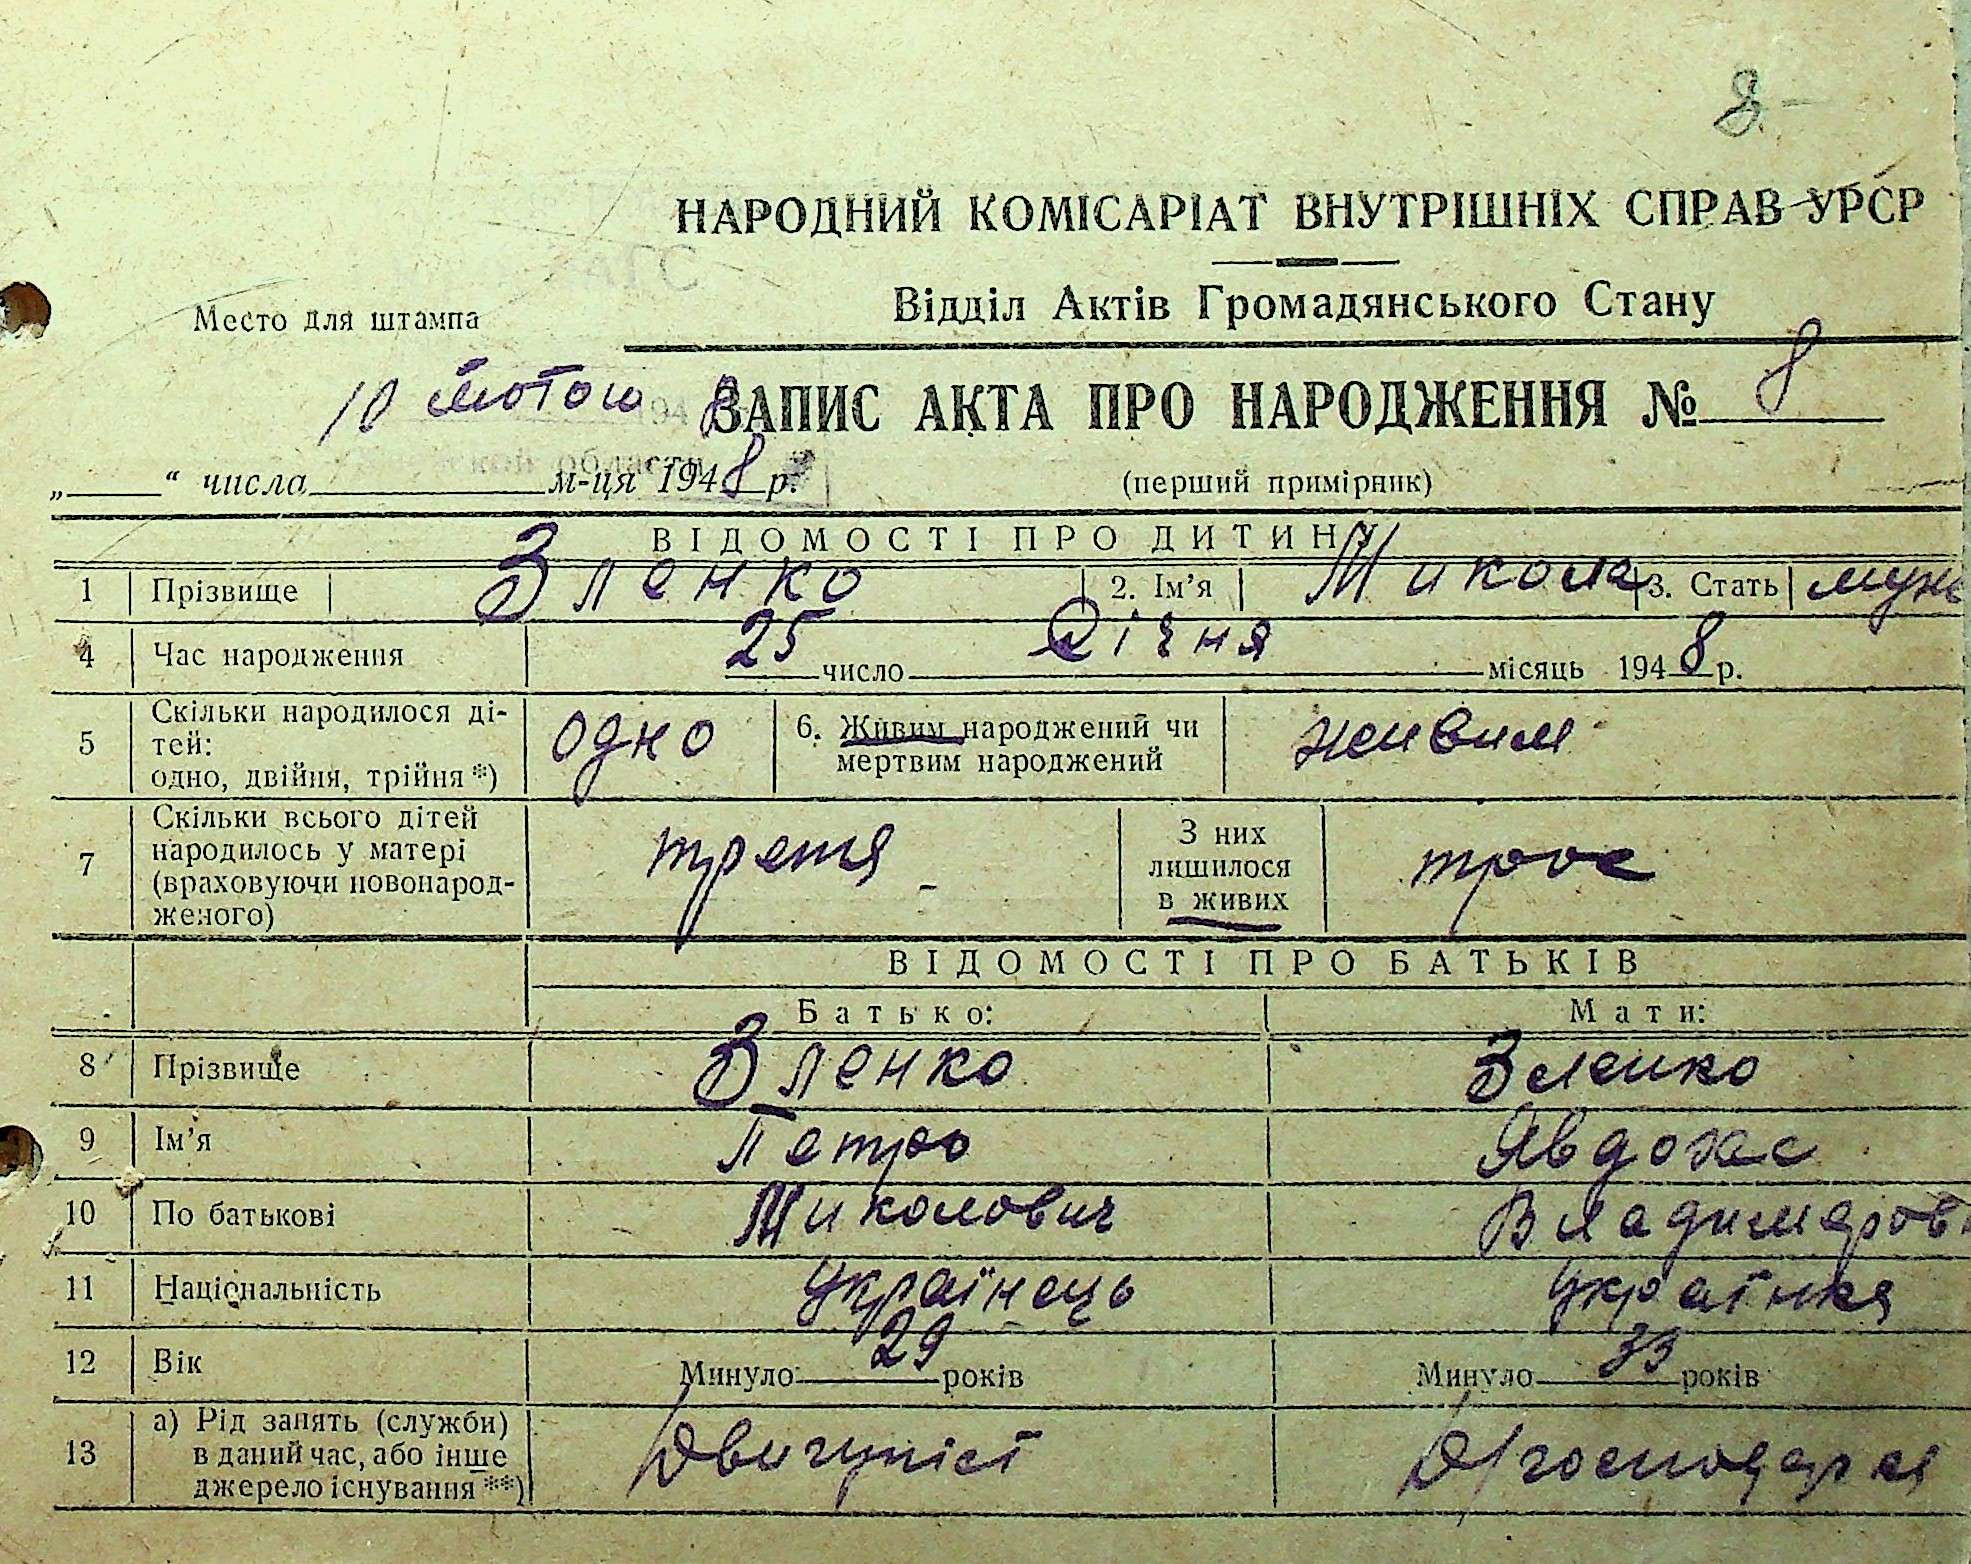 8
НАРОДНИЙ КОМІСАРІАТ ВНУТРІШНІХ СПРАВ УРСР
Відділ Актів Громадянського Стану
Место для штампа
10 Лютого 8 ЗАПИС АКТА ПРО НАРОДЖЕННЯ № 8
„ “ числа м-ця 1948 р. (перший примірник)
ВІДОМОСТІ ПРО ДИТИНУ
1 Прізвище Зленко 2. Ім’я Микола 3. Стать муж
4 Час народження 25 число Січня місяць 1948 р.
5 Скільки народилося ді-
тей:
одно, двійня, трійня*) одно 6. Живим народжений чи
мертвим народжений живим
7 Скільки всього дітей
народилось у матері
(враховуючи новонарод-
женого) третя З них
лишилося
в живих троє
ВІДОМОСТІ ПРО БАТЬКІВ
Батько: Мати:
8 Прізвище Зленко Зленко
9 Ім’я Петро Явдоха
10 По батькові Миколович Владимиров
11 Національність Українець Українка
12 Вік Минуло 29 років Минуло 33 років
13 а) Рід занять (служби)
в даний час, або інше
джерело існування**)